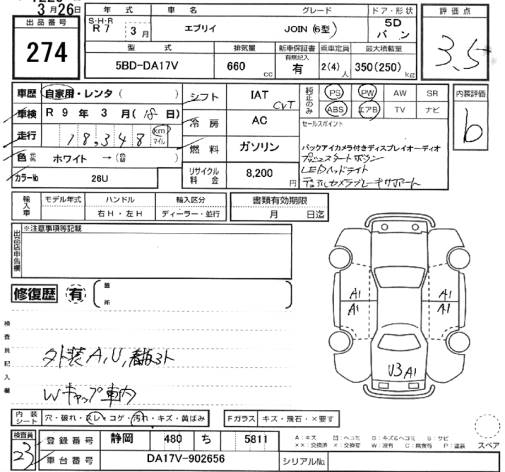 3月26日
出品番号
274
年式 車名 グレード ドア・形状
S・H・R
R7 3月 エブリイ JOIN(6型) 5D バン
型式 排気量 新車保証書 乗車定員 最大積載量
5BD-DA17V 660 cc 有 2(4)人 350(250) kg
評価点
3.5
車歴 自家用・レンタ( )
車検 R 9 年 3 月(18 日)
走行 18,348 km マイル
色 ホワイト →( )
カラーNo 26U
シフト IAT CVT
冷房 AC
燃料 ガソリン
リサイクル料金 8,200 円
純正のみ PS PW AW SR
ABS エアB TV ナビ
セールスポイント
バックアイカメラ付きディスプレイオーディオ
プッシュスタートボタン
LEDヘッドライト
デュアルカメラブレーキサポート
内装評価
b
輸入車 モデル年式 ハンドル 輸入区分
右H・左H ディーラー・並行
書類有効期限
月 日迄
出品店申告欄
※注意事項等記載
修復歴 有( 箇所 )
検査員記入欄
外装A,U,
Wキャップ車内
A1 A1
A1 A1
U3 A1
内装シート 穴・破れ・スレ・コゲ・汚れ・キズ・黄ばみ
Fガラス キズ・飛石・×要す
スペア
検査員
23
登録番号 静岡 480 ち 5811
車台番号 DA17V-902656
シリアルNo.